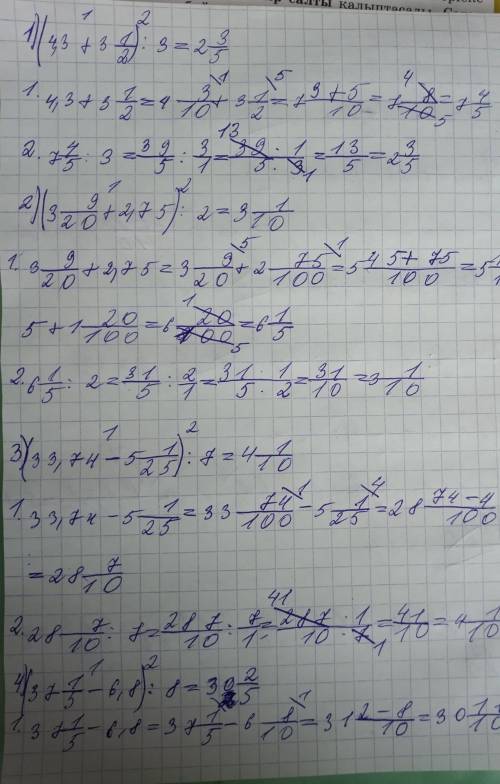 салты калыптасады
1) (4,3 + 3 1/2) : 3 = 2 3/5
1. 4,3 + 3 1/2 = 4 3/10 + 3 1/2 = 7 3+5/10 = 7 8/10 = 7 4/5
2. 7 4/5 : 3 = 39/5 : 3/1 = 39 · 1/5 · 3 = 13/5 = 2 3/5
2) (3 9/20 + 2,75) : 2 = 3 1/10
1. 3 9/20 + 2,75 = 3 9/20 + 2 75/100 = 5 45+75/100 = 5
5 + 1 20/100 = 6 20/100 = 6 1/5
2. 6 1/5 : 2 = 31/5 : 2/1 = 31/5 · 1/2 = 31/10 = 3 1/10
3) (33,74 - 5 1/25) : 7 = 4 1/10
1. 33,74 - 5 1/25 = 33 74/100 - 5 1/25 = 28 74-4/100
= 28 7/10
2. 28 7/10 : 7 = 287/10 : 7/1 = 287/10 · 1/7 = 41/10 = 4 1/10
4) (37 1/5 - 6,8) : 8 = 30 2/5
1. 37 1/5 - 6,8 = 37 1/5 - 6 8/10 = 31 2-8/10 = 30